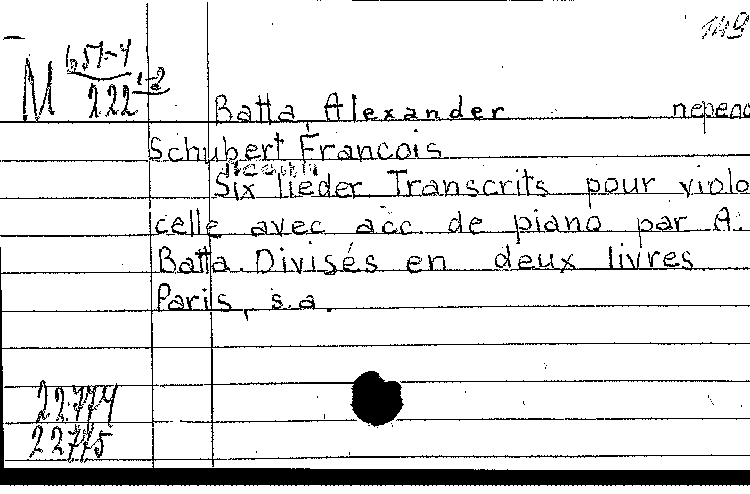 149
M 651-4
222 1-2
Batta, Alexander перелож
Schubert François
Six lieder Transcrits pour violo
celle avec acc. de piano par A.
Batta. Divisés en deux livres
Paris, s.a.
22774
22775